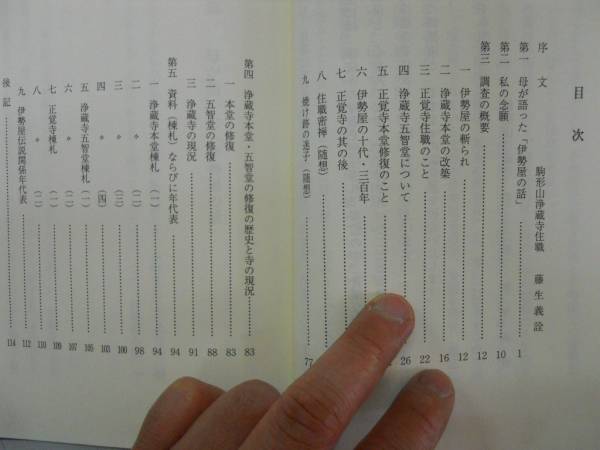 目次
序文 駒形山浄蔵寺住職 藤生義詮
第一 母が語った「伊勢屋の話」 1
第二 私の念願 10
第三 調査の概要 12
一 伊勢屋の斬られ 12
二 浄蔵寺本堂の改築 16
三 正覚寺住職のこと 22
四 浄蔵寺五智堂について 26
五 正覚寺本堂修復のこと
六 伊勢屋の十代・三百年
七 正覚寺の其の後
八 住職密禅(随想)
九 焼け跡の迷子(随想) 77
第四 浄蔵寺本堂・五智堂の修復の歴史と寺の現況 83
一 本堂の修復 83
二 五智堂の修復 88
三 浄蔵寺の現況 91
第五 資料(棟札)ならびに年代表 94
一 浄蔵寺本堂棟札(一) 94
二 〃 (二) 98
三 〃 (三) 100
四 〃 (四) 103
五 浄蔵寺五智堂棟札(一) 105
六 〃 (二) 107
七 正覚寺棟札(一) 109
八 〃 (二) 110
九 伊勢屋伝説関係年代表 112
後記 114